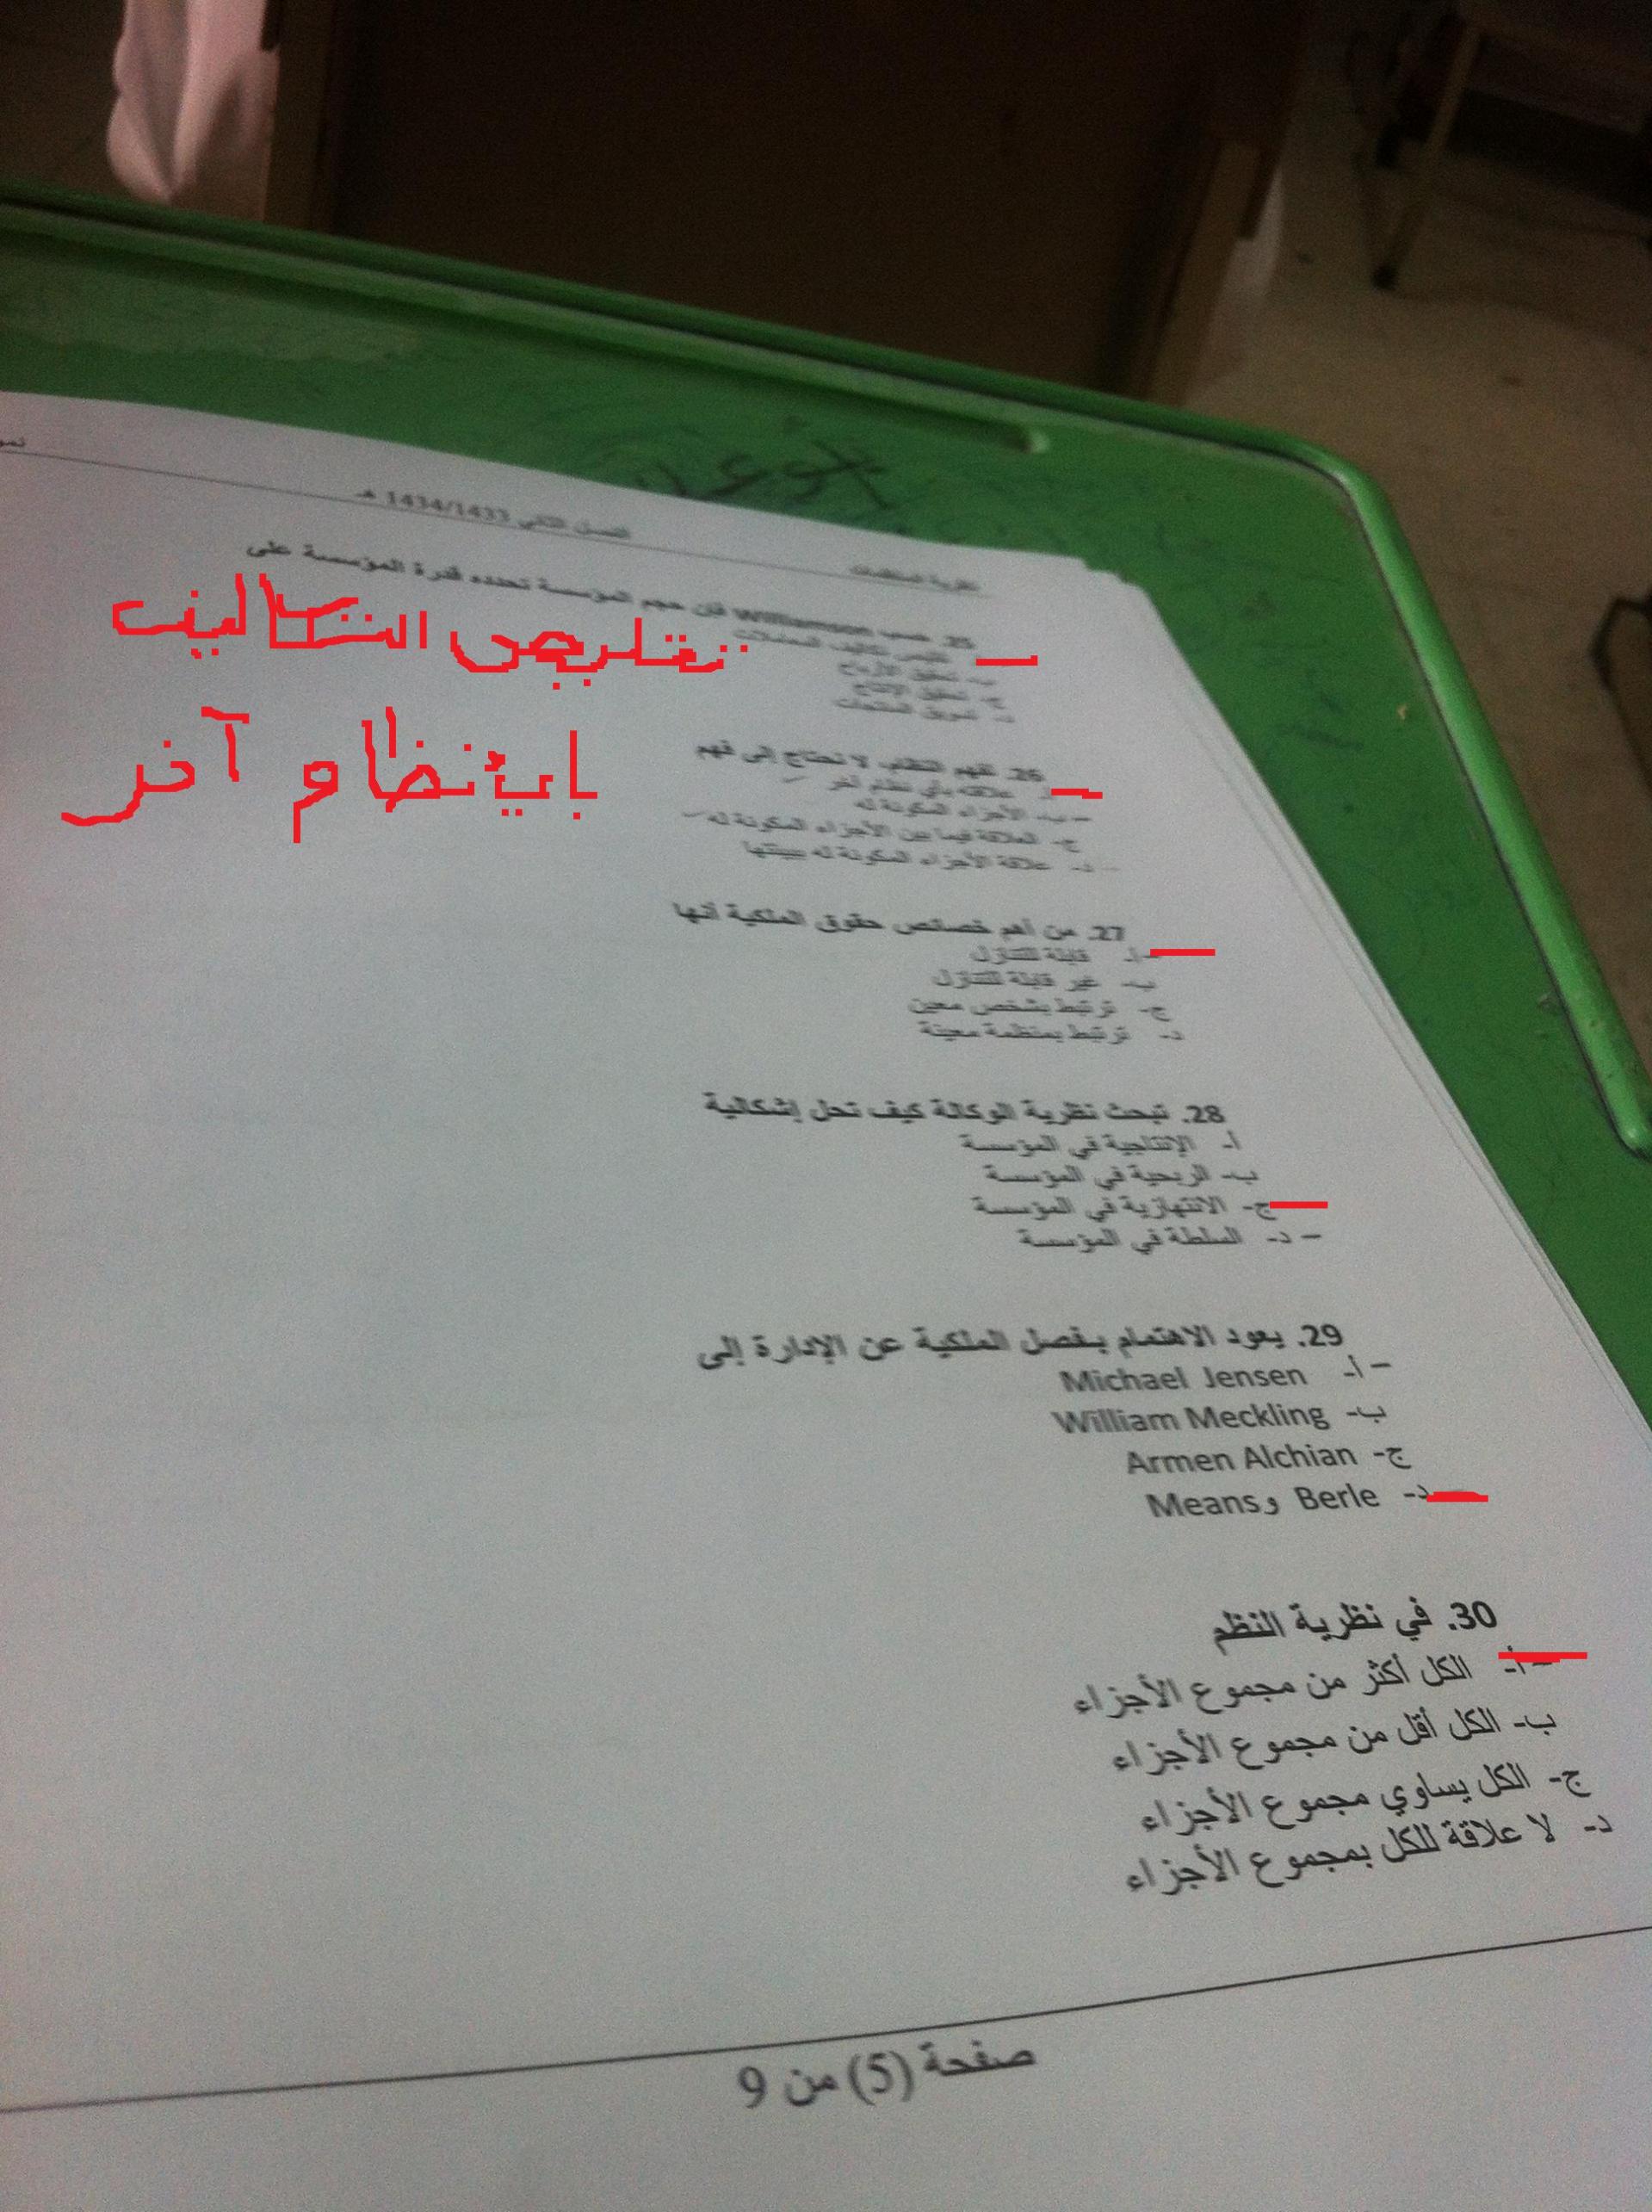 نظرية المنظمات الفصل الثاني 1434/1433 هـ
25. حسب Williamson فإن حجم المؤسسة تحدده قدرة المؤسسة على
أ- تقليص تكاليف المعاملات
تقليص التكاليف
ب- تحقيق الأرباح
ج- تحقيق الإنتاج
د- تسويق المنتجات
26. لفهم النظام، لا تحتاج إلى فهم
أ- علاقته بأي نظام آخر
بأي نظام آخر
ب- الأجزاء المكونة له
ج- العلاقة فيما بين الأجزاء المكونة له
د- علاقة الأجزاء المكونة له ببيئتها
27. من أهم خصائص حقوق الملكية أنها
أ- قابلة للتنازل
ب- غير قابلة للتنازل
ج- ترتبط بشخص معين
د- ترتبط بمنظمة معينة
28. تبحث نظرية الوكالة كيف تحل إشكالية
أ- الإنتاجية في المؤسسة
ب- الربحية في المؤسسة
ج- الانتهازية في المؤسسة
د- السلطة في المؤسسة
29. يعود الاهتمام بفصل الملكية عن الإدارة إلى
أ- Michael Jensen
ب- William Meckling
ج- Armen Alchian
د- Berle و Means
30. في نظرية النظم
أ- الكل أكثر من مجموع الأجزاء
ب- الكل أقل من مجموع الأجزاء
ج- الكل يساوي مجموع الأجزاء
د- لا علاقة للكل بمجموع الأجزاء
صفحة (5) من 9